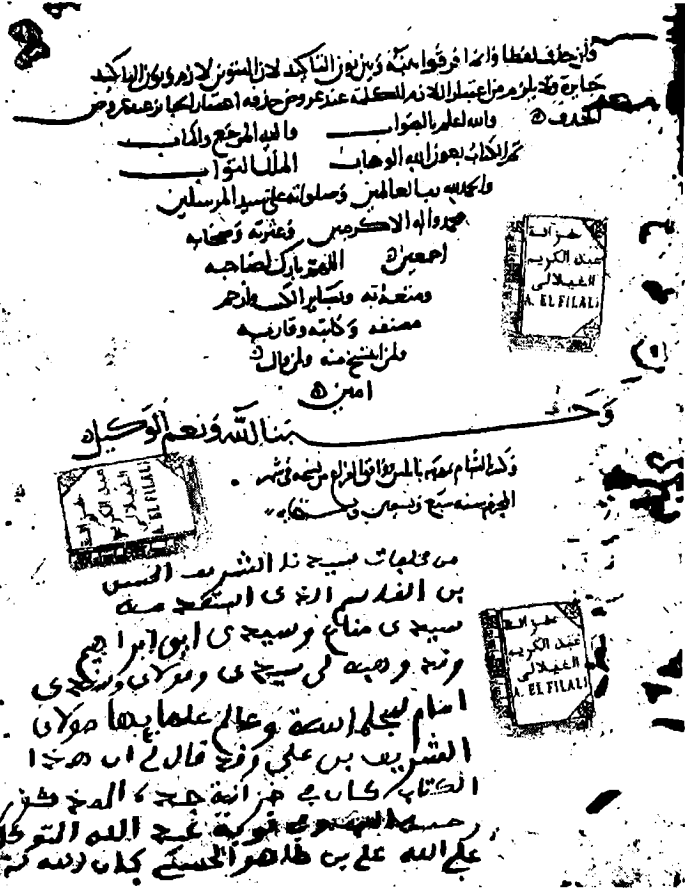 وان حذف لفظا وانما فرقوا بينه وبين نون التاكيد لان التنوين لازم ونون التاكيد
جايزة ولا يلزم من اعتبار اللازم للكلمة عند عروض حذفه اعتبار الجايز عند عروض
الحذف
والله اعلم بالصواب واليه المرجع والماب
تم الكتاب بعون الله الوهاب الملك التواب
والحمد لله رب العالمين وصلواته على سيد المرسلين
محمد واله الاكرمين وعترته وصحابه
اجمعين اللهم بارك لصاحبه
ومتعه به وبساير الكتب وارحم
مصنفه وكاتبه وقاريه
ولمن استنسخ منه ولمن قال
امين
وحسبنا الله ونعم الوكيل
خزانة
عبد الكريم
الفيلالي
A. EL FILALI
وكتب بالشام
الفراغ من نسخه في شهر
المحرم سنة سبع وتسعين
خزانة
عبد الكريم
الفيلالي
A. EL FILALI
من مخلفات سيدنا الشريف الحسن
بن القاسم الذي استقدمه
سيدي مناع وسيدي ابو ابراهيم
وقد وهبه لي سيدي ومولاي
امام سجلماسة وعالم علمائها مولاي
الشريف بن علي وقد قال لي ان هذا
الكتاب كان في خزانة جده
عبد الله
علي الله علي بن طاهر الحسني كان الله له
خزانة
عبد الكريم
الفيلالي
A. EL FILALI